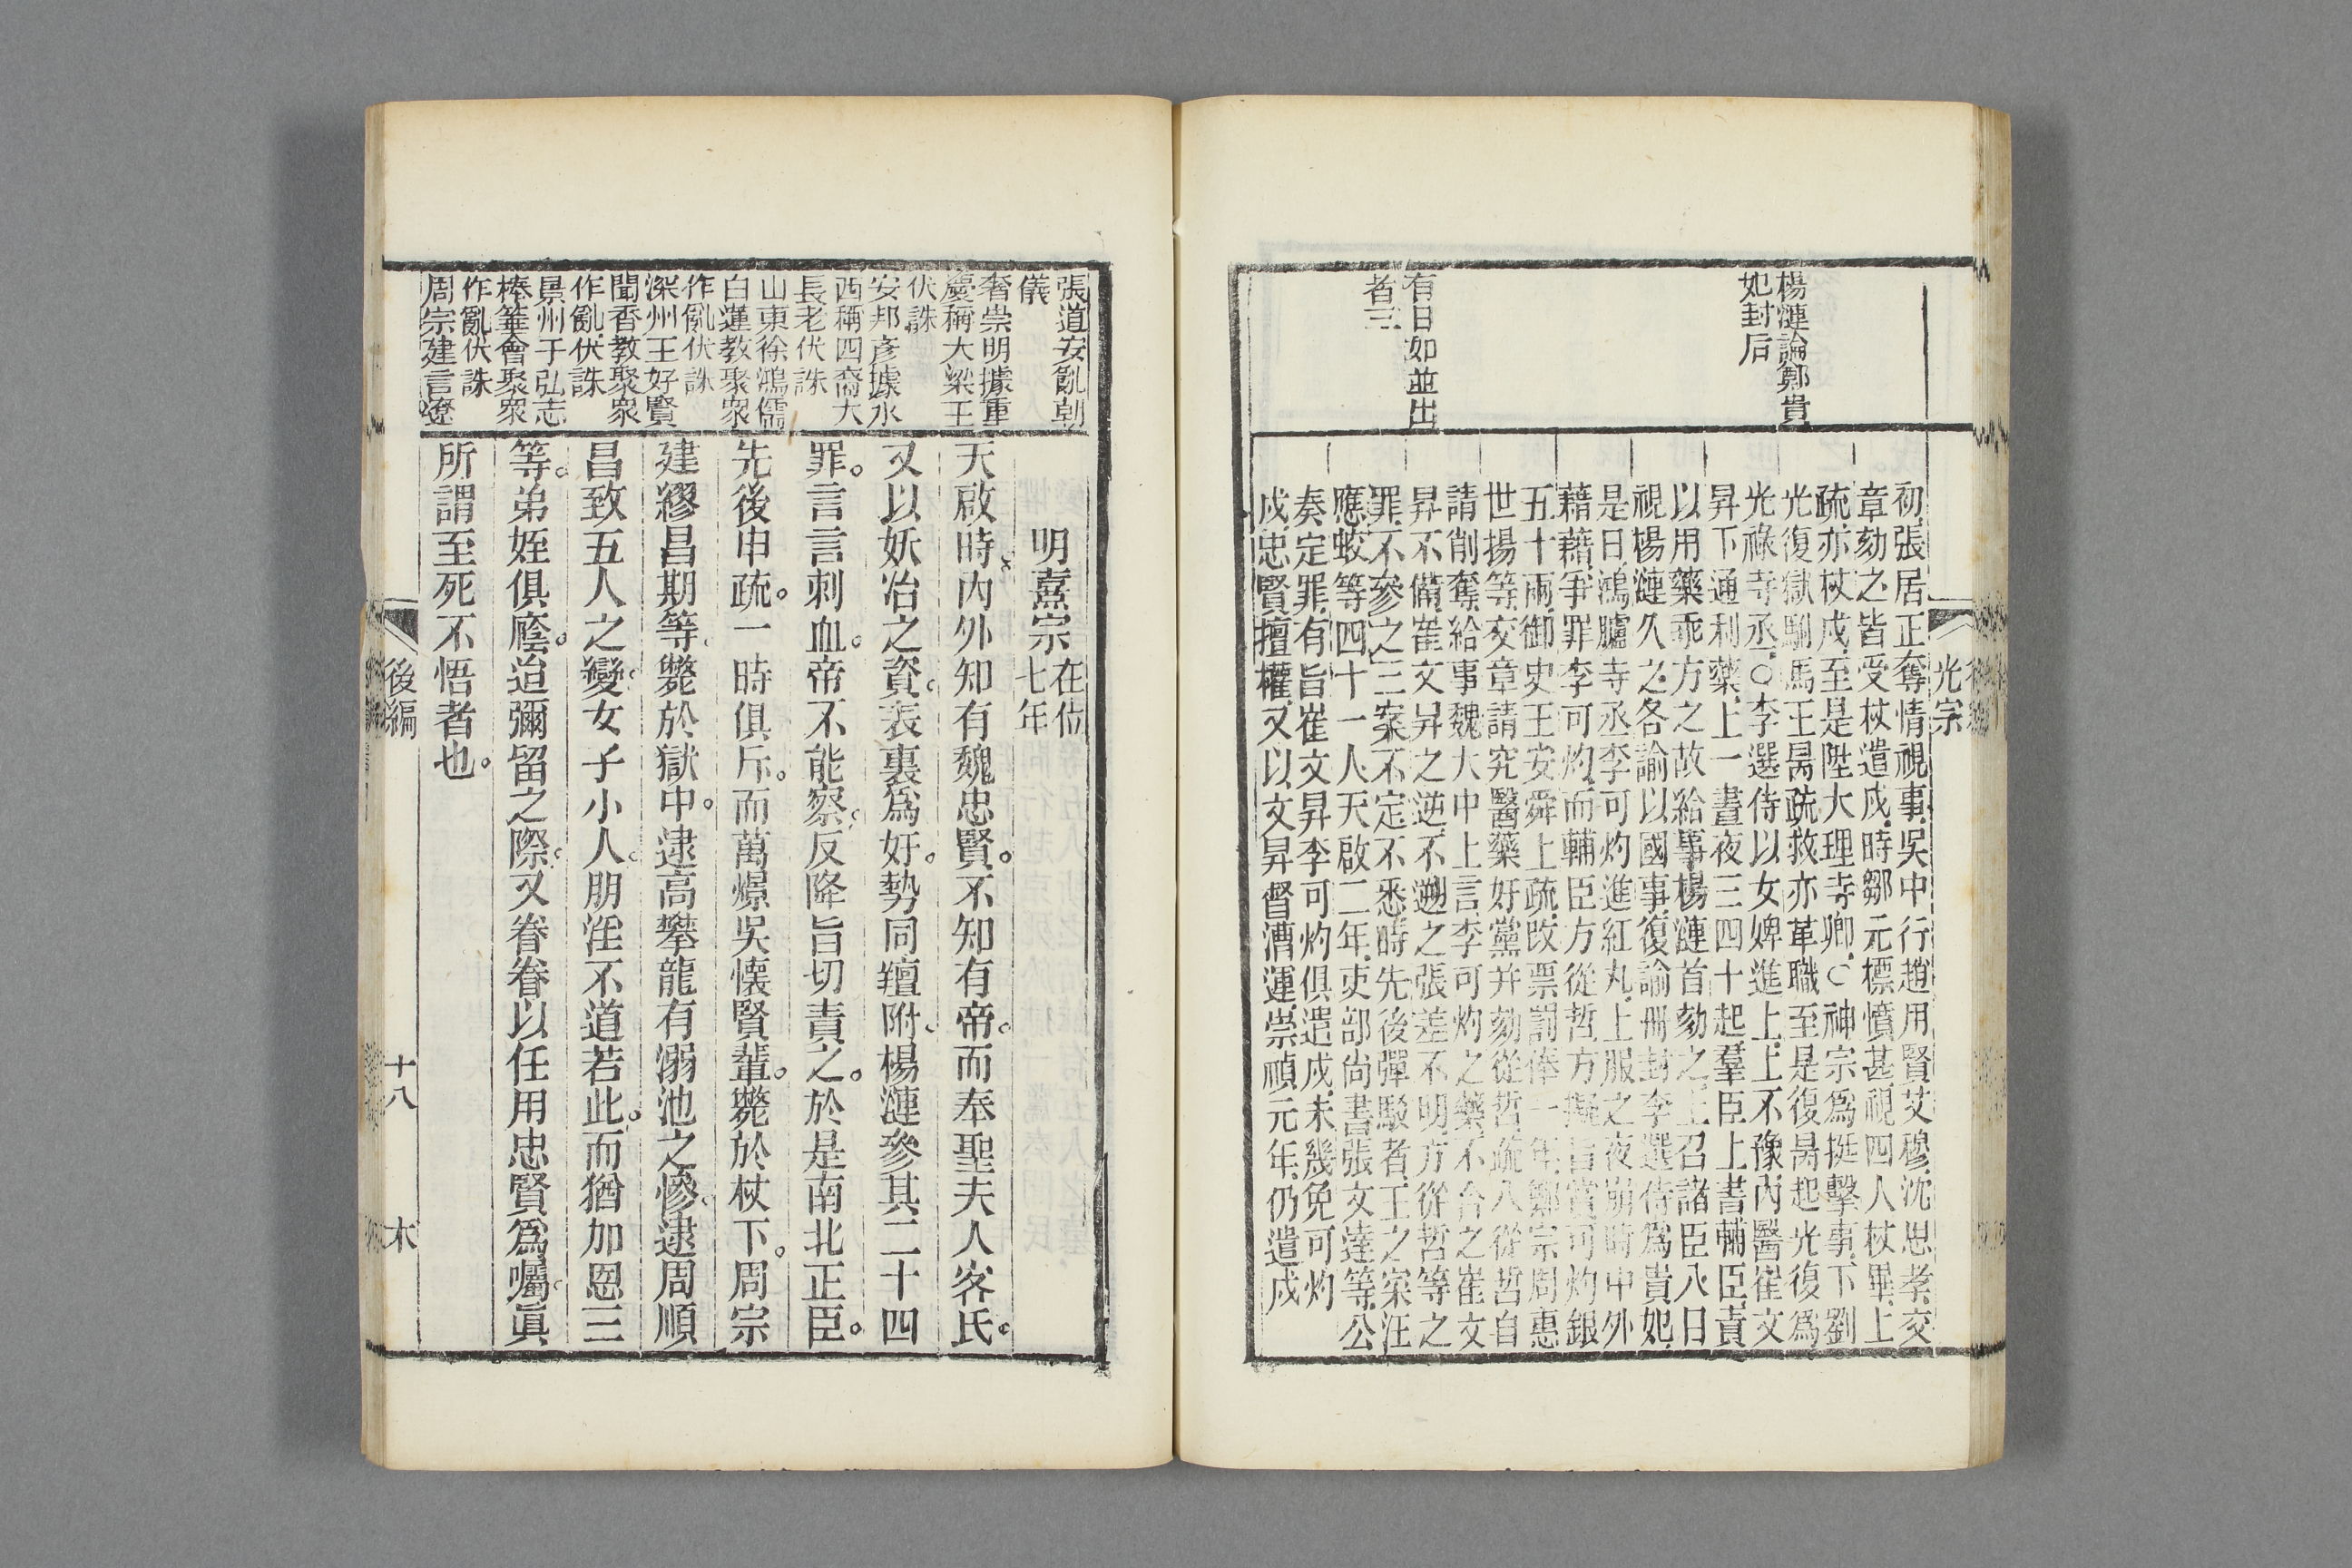 光宗
楊漣論鄭貴
妃封后
有日如並出
者三
初張居正奪情視事吳中行趙用賢艾穆沈思孝交
章劾之皆受杖遣戍時鄒元標憤甚視四人杖畢上
疏亦杖戍至是陞大理寺卿○神宗爲挺擊事下劉
光復獄駙馬王昺疏救亦革職至是復昺起光復爲
光祿寺丞○李選侍以女婢進上上不豫內醫崔文
昇下通利藥上一晝夜三四十起羣臣上書輔臣責
以用藥乖方之故給事楊漣首劾之上召諸臣八日
視楊漣久之各諭以國事復諭冊封李選侍爲貴妃
是日鴻臚寺丞李可灼進紅丸上服之夜崩時中外
藉藉爭罪李可灼而輔臣方從哲方擬旨賞可灼銀
五十兩御史王安舜上疏改票罰俸一年鄭宗周惠
世揚等交章請究醫藥奸黨并劾從哲疏入從哲自
請削奪給事魏大中上言李可灼之藥不合之崔文
昇不備崔文昇之逆不遡之張差不明方從哲等之
罪不參之三案不定不悉時先後彈駁者王之寀汪
應蛟等四十一人天啟二年吏部尚書張文達等公
奏定罪有旨崔文昇李可灼俱遣戍未幾免可灼
戍忠賢擅權又以文昇督漕運崇禎元年仍遣戍
張道安亂朝
儀
奢崇明據重
慶稱大梁王
伏誅
安邦彥據水
西稱四裔大
長老伏誅
山東徐鴻儒
白蓮教聚衆
作亂伏誅
深州王好賢
聞香教聚衆
作亂伏誅
景州于弘志
棒箠會聚衆
作亂伏誅
周宗建言遼
明熹宗 在位
七年
天啟時內外知有魏忠賢。不知有帝。而奉聖夫人客氏。
又以妖冶之資。表裏爲奸。勢同羶附。楊漣參其二十四
罪。言言刺血。帝不能察。反降旨切責之。於是南北正臣。
先後申疏。一時俱斥。而萬燝吳懷賢輩。斃於杖下。周宗
建繆昌期等。斃於獄中。逮高攀龍有溺池之慘。逮周順
昌致五人之變。女子小人。朋淫不道若此。而猶加恩三
等。弟姪俱廕。迨彌留之際。又眷眷以任用忠賢爲囑。眞
所謂至死不悟者也。
後編
十八
木